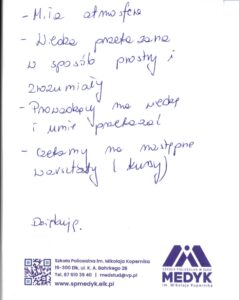 - Miła atmosfera
- Wiedza przekazana
w sposób prostry i
zrozumiały
- Prowadzący ma wiedzę
i umie przekazać
- Czekamy na następne
warsztaty (kursy)
Dziękuję.
Szkoła Policealna im. Mikołaja Kopernika
19-300 Ełk, ul. K. A. Bahrkego 2B
Tel. 87 610 39 40 | medstud@vp.pl
www.spmedyk.elk.pl
SZKOŁA POLICEALNA W EŁKU
MEDYK
im. Mikołaja Kopernika